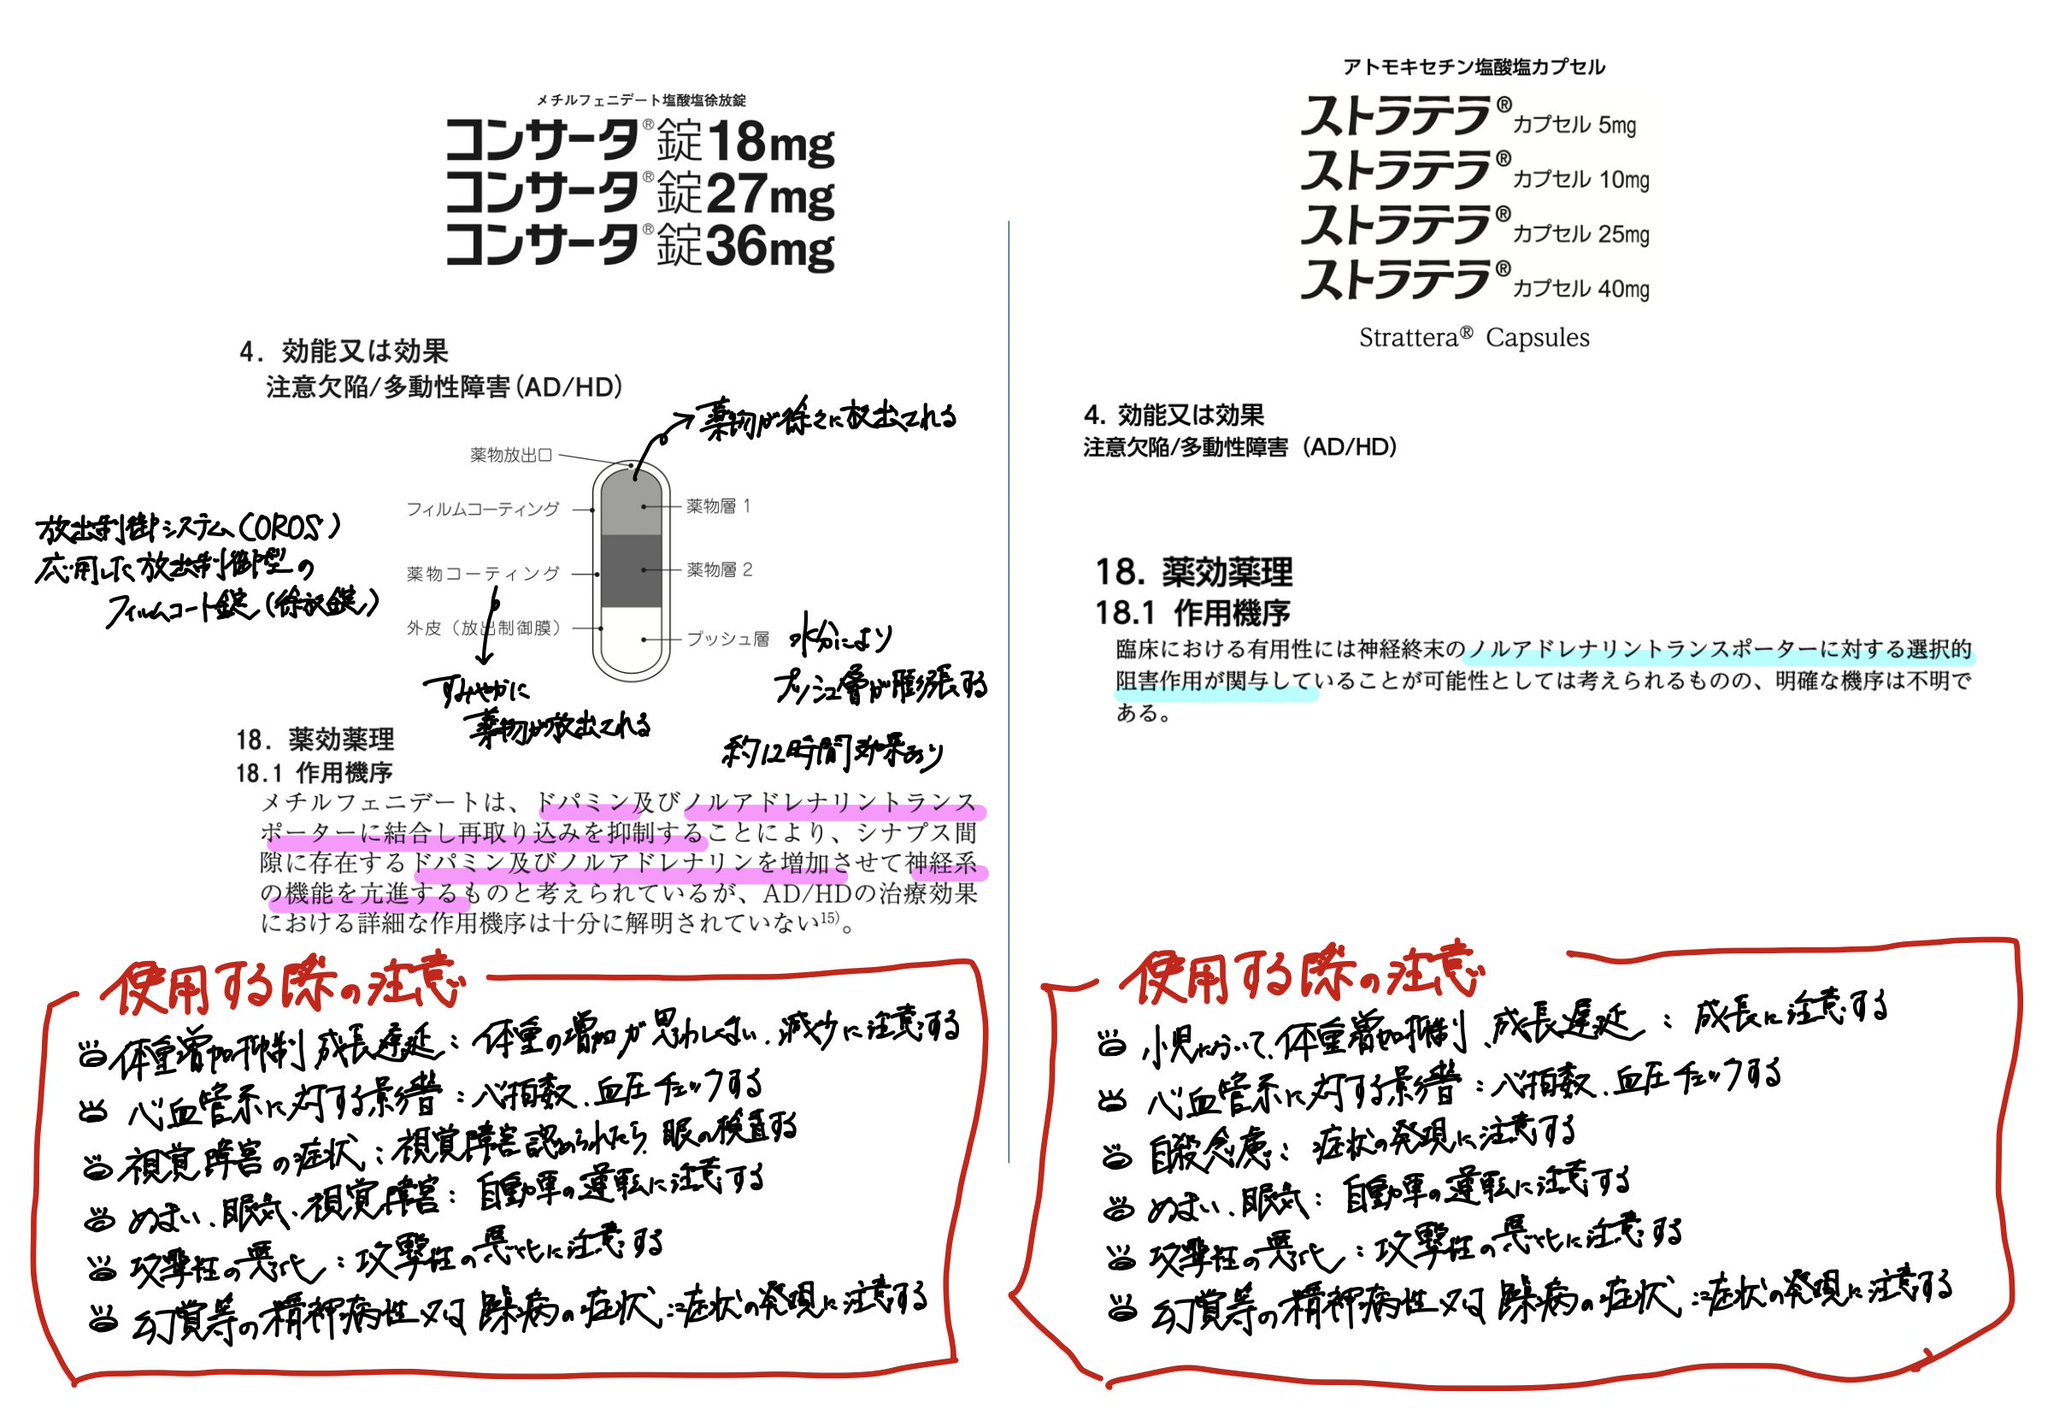 メチルフェニデート塩酸塩徐放錠
コンサータ®錠18mg
コンサータ®錠27mg
コンサータ®錠36mg
4. 効能又は効果
注意欠陥/多動性障害(AD/HD)
薬物が徐々に放出される
薬物放出口
フィルムコーティング
薬物層1
放出制御システム(OROS)
応用した放出制御型の
フィルムコート錠(徐放錠)
薬物コーティング
薬物層2
外皮（放出制御膜）
プッシュ層
水分により
プッシュ層が膨張する
すみやかに
薬物が放出される
約12時間効果あり
18. 薬効薬理
18.1 作用機序
メチルフェニデートは、ドパミン及びノルアドレナリントランス
ポーターに結合し再取り込みを抑制することにより、シナプス間
隙に存在するドパミン及びノルアドレナリンを増加させて神経系
の機能を亢進するものと考えられているが、AD/HDの治療効果
における詳細な作用機序は十分に解明されていない15)。
使用する際の注意
体重増加抑制 成長遅延：体重の増加が思わしくない、減少に注意する
心血管系に対する影響：心拍数、血圧チェックする
視覚障害の症状：視覚障害認められたら、眼の検査する
めまい、眠気、視覚障害：自動車の運転に注意する
攻撃性の悪化：攻撃性の悪化に注意する
幻覚等の精神病性又は躁病の症状：症状の発現に注意する
アトモキセチン塩酸塩カプセル
ストラテラ®カプセル 5mg
ストラテラ®カプセル 10mg
ストラテラ®カプセル 25mg
ストラテラ®カプセル 40mg
Strattera® Capsules
4. 効能又は効果
注意欠陥/多動性障害（AD/HD）
18. 薬効薬理
18.1 作用機序
臨床における有用性には神経終末のノルアドレナリントランスポーターに対する選択的
阻害作用が関与していることが可能性としては考えられるものの、明確な機序は不明で
ある。
使用する際の注意
小児において、体重増加抑制、成長遅延：成長に注意する
心血管系に対する影響：心拍数、血圧チェックする
自殺念慮：症状の発現に注意する
めまい、眠気：自動車の運転に注意する
攻撃性の悪化：攻撃性の悪化に注意する
幻覚等の精神病性又は躁病の症状：症状の発現に注意する